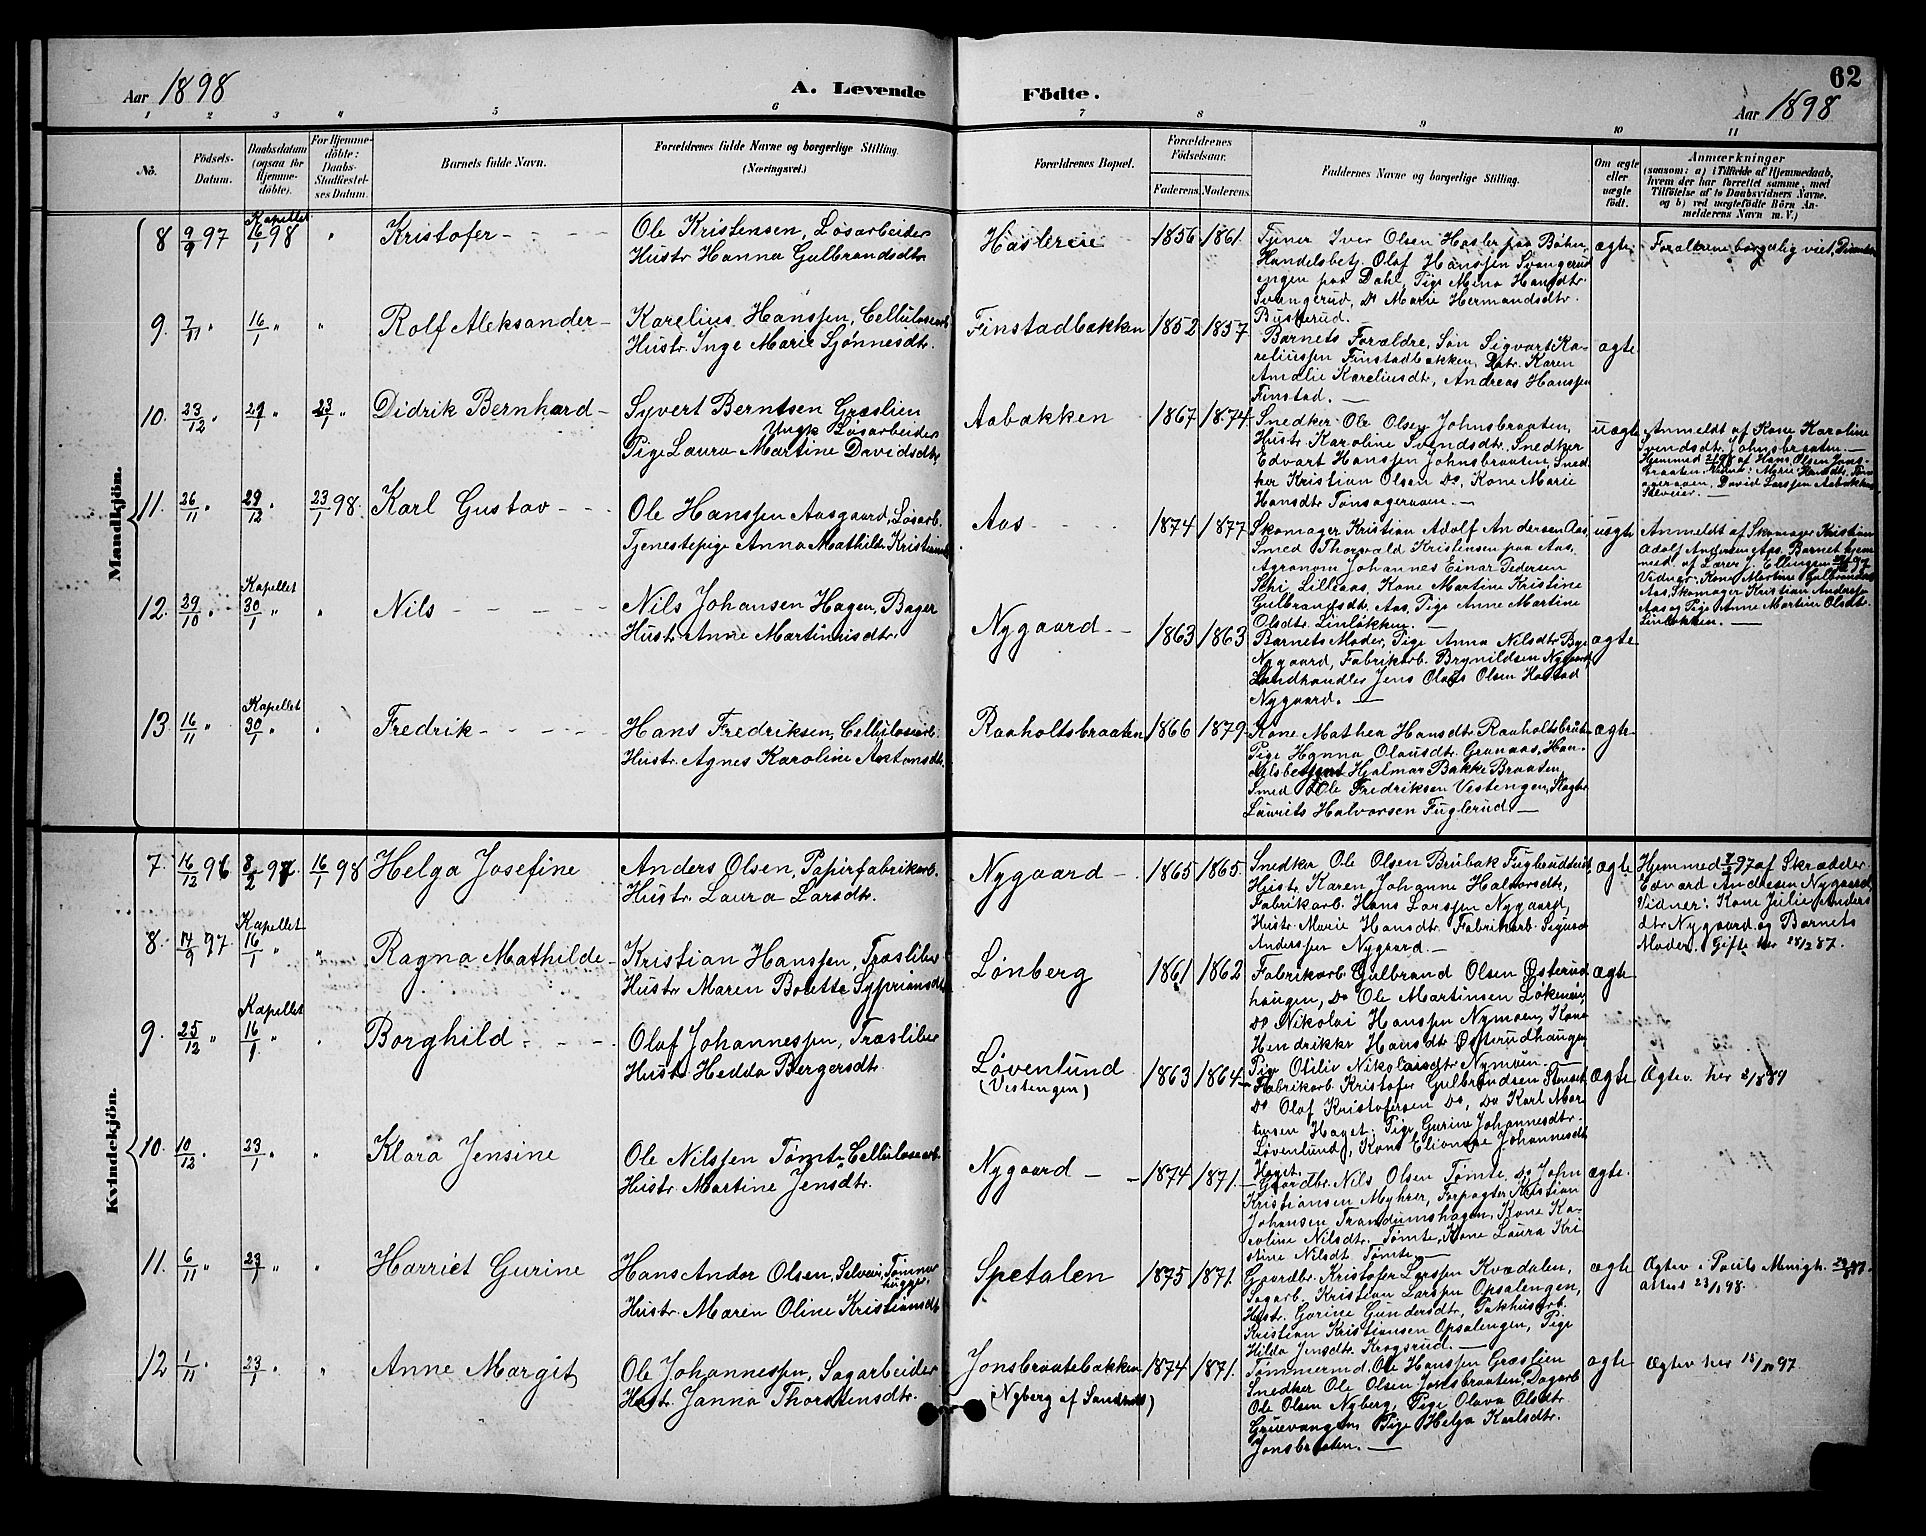 62
Aar 1898
A. Levende
Födte.
Aar 1898
1 2 3 4 5 6 7 8 9 10 11
No.
Födsels-
Datum.
Daabsdatum
(ogsaa for
Hjemme-
döbte).
For Hjemme-
döbte:
Daabs
Stadfæstel-
ses Datum.
Barnets fulde Navn.
Forældrenes fulde Navne og borgerlige Stilling.
(Næringsvei.)
Forældrenes Bopæl.
Forældrenes
Födselsaar.
Faderens. Moderens.
Faddernes Navne og borgerlige Stilling.
Om ægte
eller
uægte
födt.
Anmærkninger
(saasom: a) i Tilfælde af Hjemmedaab,
hvem der har forrettet samme, med
Tilföielse af to Daabsvidners Navne.
og b) ved uægtefödte Börn An-
melderens Navn m. V.)
Mandkjön.
8 9/9 97 Kapellet 16/1 98 "
Kristofer
Ole Kristensen, Løsarbeider
Hustr. Hanna Gulbrandsdtr.
Haslereie
1856 1861
Tjener Iver Olsen Hasler paa Bøhn,
Handelsbetj. Olaf Hanssen Svangerud
engen paa Dahl, Pige Mina Hansdtr.
Svangerud, Do Marie Hermandsdtr.
Buskerud.
ægte
Forældrene borgerlig viet,
9. 7/11 " 16/1 " "
Rolf Aleksander
Karelius Hanssen, Cellulosearb.
Hustr. Inge Marie Sjønnesdtr.
Finstadbakken
1852 1857
Barnets Forældre, Søn Sigvart Ka-
reliussen Finstadbakken, Datr. Karen
Amalie Kareliusdt., Andreas Hanssen
Finstad.
ægte
10. 23/12 " 29/1 " 23/1 "
Didrik Bernhard
Syvert Berntsen Græslien
Ungk. Løsarbeider
Pige Laura Martine Davidsdtr.
Aabakken
1867 1874
Snedker Ole Olsen Johnsbraaten,
Hustr. Karoline Svendsdtr. Snedker
Edvart Hanssen Johnsbraaten, Sned
ker Kristian Olsen Do, Kone Marie
Hansdtr. Tønsageraaen.
uægte
Anmeldt af Kone Karoline
Svendsdt. Johnsbraaten.
David Larssen Aabakken
11. 26/11 " 29/12 " 23/1 98.
Karl Gustav
Ole Hanssen Aasgaard, Løsarb.
Tjenestepige Anna Mathilde
Aas
1874 1877
Skomager Kristian Adolf Andersen Aas,
Smed Thorvald Kristensen paa Aas,
Agronom Johannes Einar Pedersen
Lilleaas, Kone Martine Kristine
Gulbrandsdt. Aas, Pige Anne Martine
Olsdtr. Linløkken.
uægte
Anmeldt af Skomager Kristian
Adolf Andersen Aas. Barnet hjem
med. af Lærer J. Ellingsen 29/12 97
Vidner: Kone Martine Gulbrandsdt
Aas, Skomager Kristian Andersen
Aas og Pige Anne Martine Olsdtr.
Linløkken.
12. 29/10 " Kapellet 30/1 " "
Nils
Nils Johansen Hagen, Bager
Hustr. Anne Martinusdtr.
Nygaard
1863 1863
Barnets Moder, Pige Anna Nilsdtr. Bye
Nygaard, Fabrikarb. Brynildsen Nygaard,
Landhandler Jens Olaus Olsen Hastad
Nygaard.
ægte
13. 16/11 " Kapellet 30/1 " "
Fredrik
Hans Fredriksen, Cellulosearb.
Hustr. Agnes Karoline Antonsdt.
Raaholtsbraaten
1866 1879
Kone Mathea Hansdt. Raaholtsbraat
Pige Hanna Olausdtr. Granaas, Han-
delsbetjent Hjalmar Bakke Braaten,
Smed Ole Fredriksen Vestengen,
Laurits Halvorsen Fuglerud
ægte
Kvindekjön.
7. 16/12 96 8/2 97. 16/1 98
Helga Josefine
Anders Olsen, Papirfabrikarb.
Hustr. Laura Larsdtr.
Nygaard
1865 1865.
Snedker Ole Olsen Brubak
Hustr. Karen Johanne Halvorsdtr,
Fabrikarb. Hans Larssen Nygaard,
Hustr. Marie Hansdt. Fabrikarb. Sigurd
Anderssen Nygaard
ægte
Hjemmed. 8/2 97 af Skrædder
Edvard Andresen Nygaard
Vidner: Kone Julie Anders
dtr Nygaard og Barnets
Moder. Gifte her 28/2 87.
8. 14/9 97 Kapellet 16/1 " "
Ragna Mathilde
Kristian Hanssen, Træsliber
Hustr. Maren Bolette Sypriansdt
Lønberg
1861 1862
Fabrikarb Gulbrand Olsen Østerud
haugen, Do Ole Martinsen Løkemoen,
Do Nikolai Hanssen Nymoen, Kone
Hendrikke Hansdt Østerudhaugen,
Pige Otiliv Nikolaisdtr Nymoen
ægte
9. 25/12 " Kapellet 16/1 " "
Borghild
Olaf Johannessen, Træsliber
Hustr. Hedda Bergersdtr.
Løvenlund
(Vestengen)
1863 1864
Fabrikarb. Kristofer Gulbrandsen
Do Olaf Kristofersen Do, Do Karl Mar-
tinsen Haget; Pige Gurine Johannesdtr.
Løvenlund, Kone Elionore Johannesdt
Haget.
ægte
Ægtev. her 2/8 89
10. 10/12 " 23/1 " "
Klara Jensine
Ole Nilssen Tømte, Cellulosearb
Hustr. Martine Jensdtr.
Nygaard
1874 1871.
Gaardbr. Nils Olsen Tømte, Do John
Kristiansen Myhrer, Forpagter Kristian
Johansen Trandumshagen, Kone Ka-
roline Nilsdtr. Tømte, Kone Laura Kri-
stine Nilsdt. Tømte
ægte.
11. 6/11 " 23/1 " "
Harriet Gurine
Hans Andor Olsen, Selveier, Tømmer
hugger,
Hustr. Maren Oline Kristiansdt
Spetalen
1875 1871.
Gaardbr. Kristofer Larssen Kvædalen,
Sagarb. Kristian Larssen Opsalengen,
Hustr. Gorine Gundersdtr, Pakhusarb.
Kristian Kristiansen Opsalengen, Pige
Hilda Jensdtr. Krogsrud.
ægte
Ægtev. i Pauls Menigh.
attest 23/1 98.
12 1/11 " 23/1 " "
Anne Margit
Ole Johannessen, Sagarbeider
Hustr. Janna Thorstensdtr.
Jonsbraatebakken
(Nyberg af Sandnes)
1874 1871.
Tømmermd. Ole Hanssen Græslien
Snedker Ole Olsen Jonsbraaten, Dagarb
Ole Olsen Nyberg, Pige Olava Olsdtr.
Gruevangen, Pige Helga Karlsdtr.
Jonsbraaten.
ægte
Ægtev her 15/10 97.